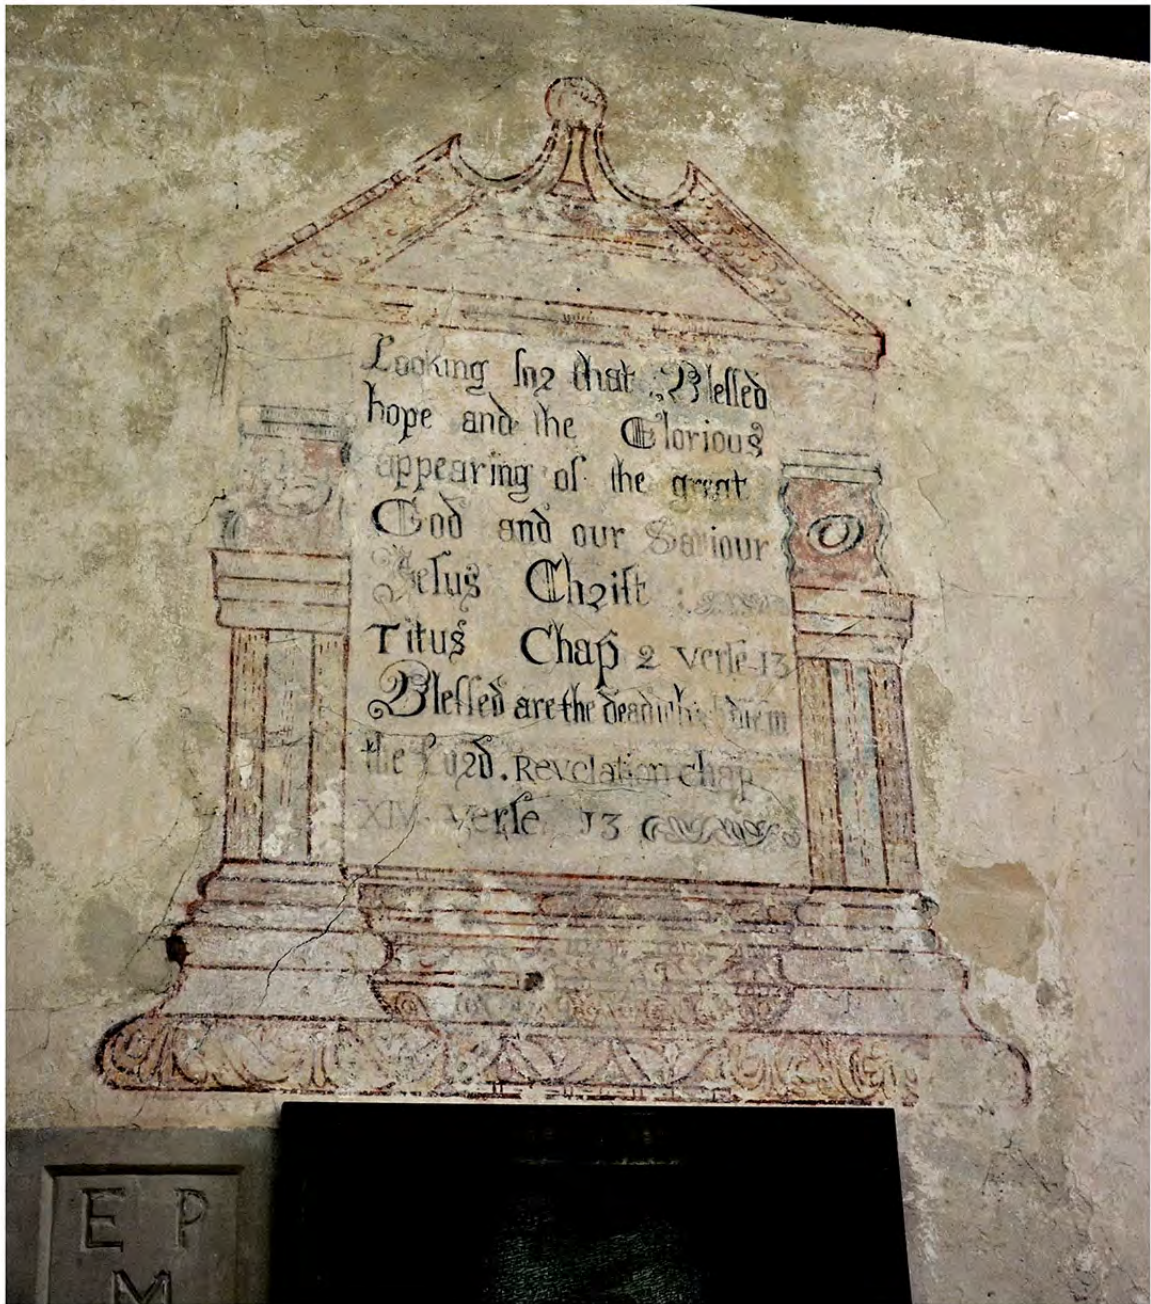 Looking for that Blessed
hope and the Glorious
appearing of the great
God and our Saviour
Jesus Christ
Titus Chap 2 verse 13
Blessed are the dead die in
the Lord. Revelation chap
XIV. verse 13
E P
M